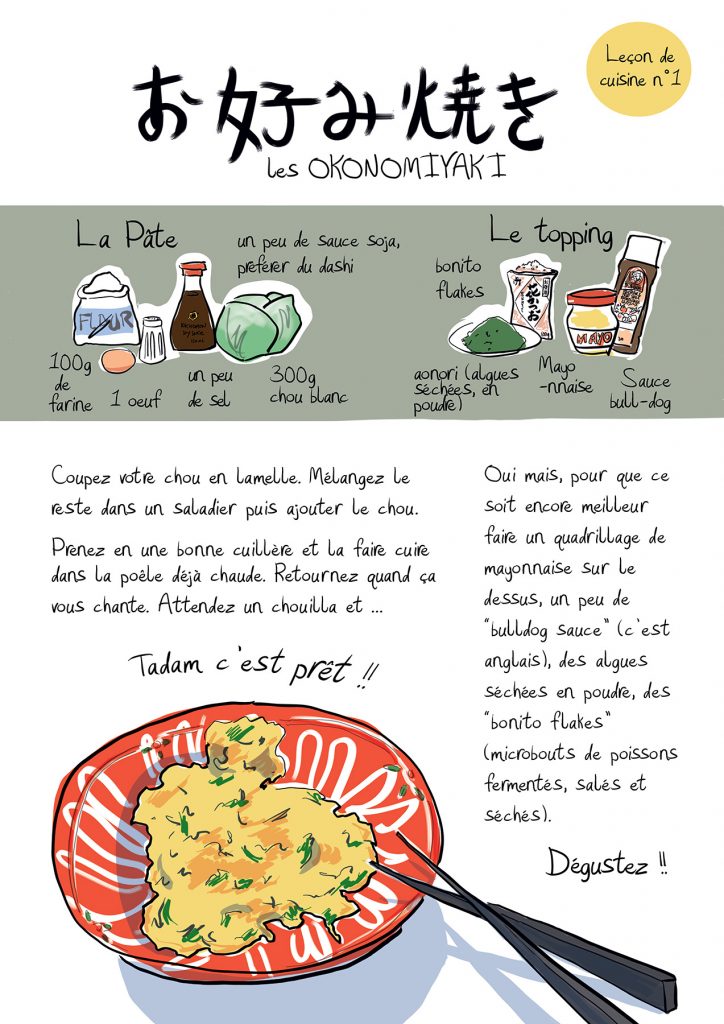 Leçon de
cuisine n°1
お好み焼き
les OKONOMIYAKI
La Pâte
un peu de sauce soja,
préférer du dashi
FLOUR
100g
de
farine
1 oeuf
un peu
de sel
300g
chou blanc
Le topping
bonito
flakes
花かつお
MAYO
aonori (algues
séchées, en
poudre)
Mayo
-nnaise
Sauce
bull-dog
Coupez votre chou en lamelle. Mélangez le
reste dans un saladier puis ajouter le chou.
Prenez en une bonne cuillère et la faire cuire
dans la poêle déjà chaude. Retournez quand ça
vous chante. Attendez un chouilla et ...
Tadam c'est prêt !!
Oui mais, pour que ce
soit encore meilleur
faire un quadrillage de
mayonnaise sur le
dessus, un peu de
"bulldog sauce" (c'est
anglais), des algues
séchées en poudre, des
"bonito flakes"
(microbouts de poissons
fermentés, salés et
séchés).
Dégustez !!